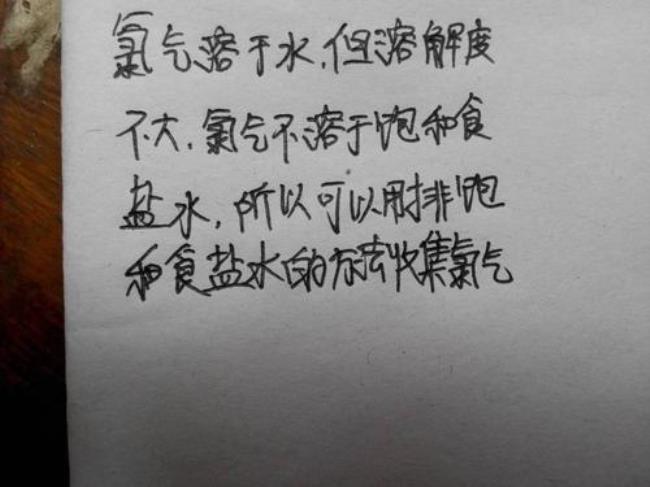 氯气溶于水,但溶解度
不大,氯气不溶于饱和食
盐水,所以可以用排饱
和食盐水的方法收集氯气